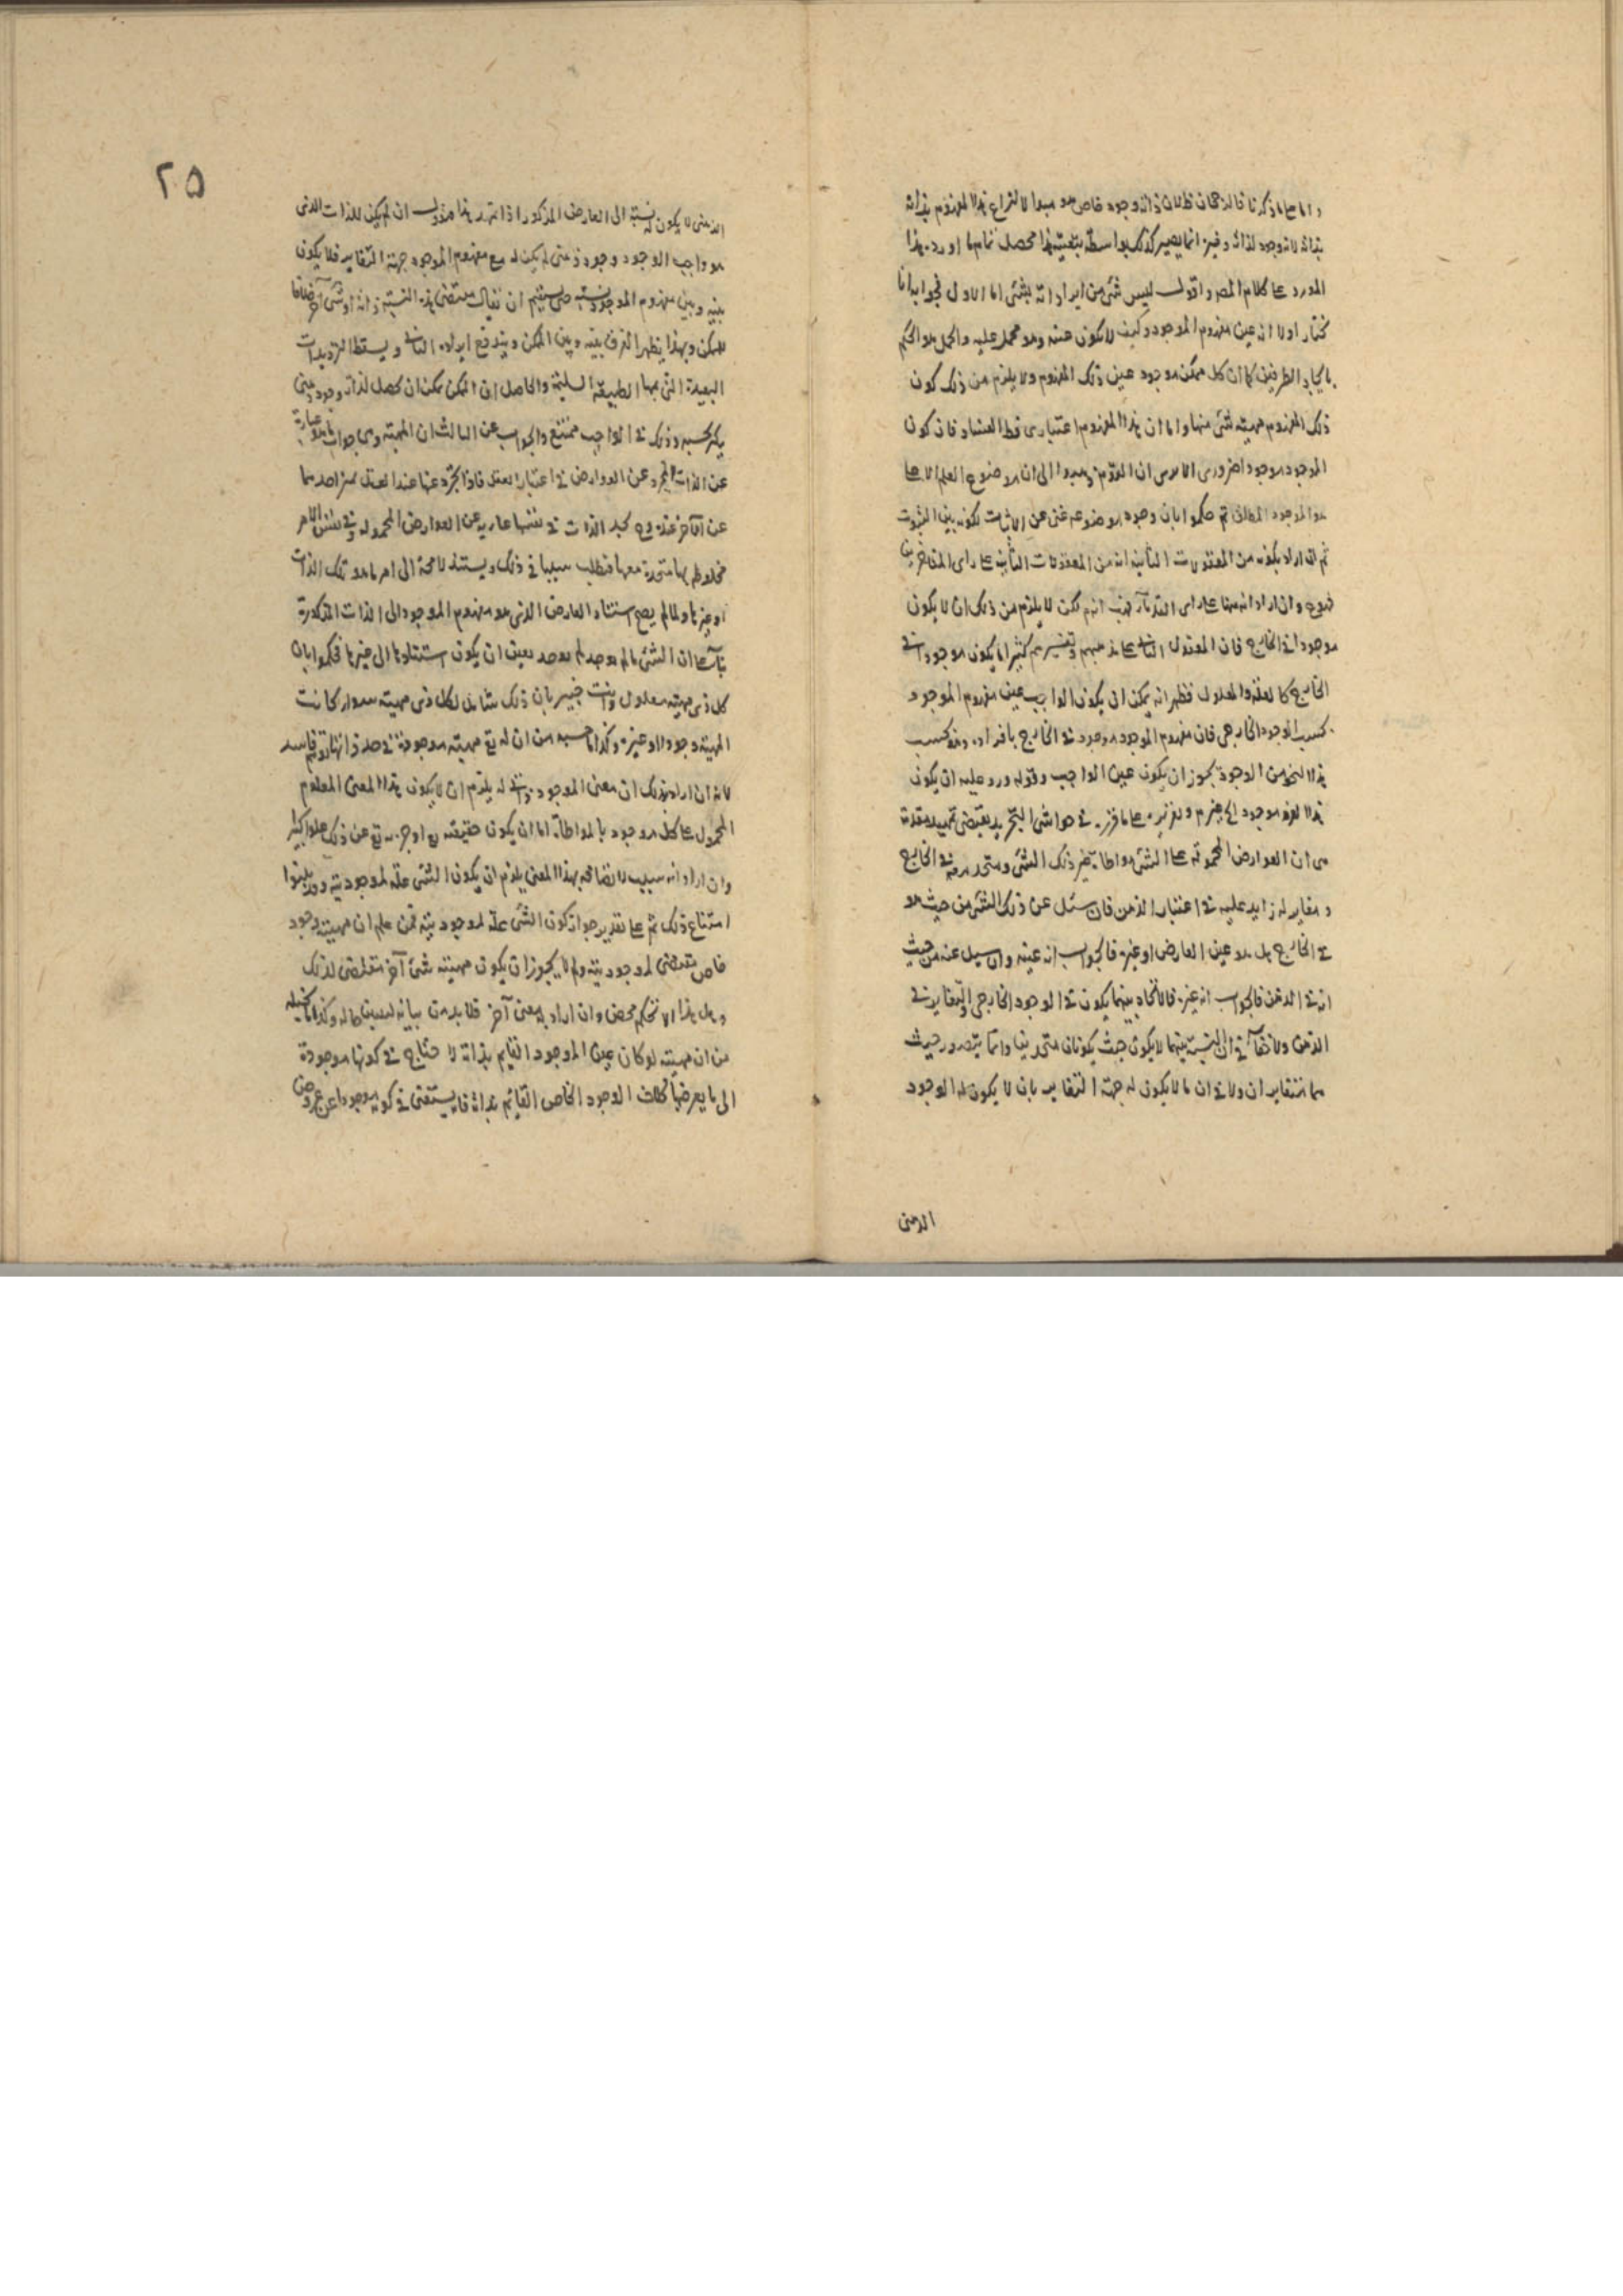 واما على ما ذكرنا فالرجحان ظ لان ذاته وجود خاص هو مبدا لانتزاع هذا المفهوم بذاته
بذاته لانه وجود لذاته وغيره انما يصير كذلك بواسطة هذا محصل تمام ما اورده هذا
المورد على كلام المص واقول ليس شئ من ايراداته بشئ اما الاول فجوابه انا
نختار اولا انه عين مفهوم الموجود وكيف لا يكون عينه وهو محمول عليه والحمل هو الحكم
باتحاد الطرفين كما ان كل ممكن موجود عين ذلك المفهوم ولا يلزم من ذلك كون
ذلك المفهوم مهيته لشئ منها واما ان هذا المفهوم اعتبارى فظ الفساد فان كون
الموجود موجودا ضرورى الا ترى ان القوم ذهبوا الى ان موضوع العلم الاعلى
هو الموجود المطلق ثم حكموا بان وجود موضوعه غنى عن الاثبات لكونه بين الثبوت
ثم ان اراد بكونه من المعقولات الثانية انه من المعقولات الثانية على راى المتاخرين
فمم وان اراد انه منها على راى القدمآء فهب انه لكن لا يلزم من ذلك ان لا يكون
موجودا فى الخارج فان المعقول الثانى على مذهبهم وتفسيرهم كثيرا ما يكون موجودا فى
الخارج كالعلة والمعلول فظهر انه يمكن ان يكون الواجب عين مفهوم الموجود
بحسب الوجود الخارجى فان مفهوم الموجود موجود فى الخارج بافراده وهو بحسب
هذا النحو من الوجود يجوز ان يكون عين الواجب وقوله ورد عليه ان يكون
هذا الفرد موجودا لغيرهم وتقريره على ما قرره فى حواشى التجريد يقتضى تمهيد مقدمة
هى ان العوارض المحمولة على الشئ مواطاة غير ذلك الشئ ومتحد معه فى الخارج
ومغاير له زايد عليه فى اعتبار الذهن فان سئل عن ذلك الشئ من حيث هو
فى الخارج هل هو عين العارض او غيره فالجواب انه عينه وان سيل عنه من حيث
انه فى الذهن فالجواب انه غيره فالاتحاد بينهما يكون فى الوجود الخارجى والتغاير فى
الذهن ولا خفآء فى ان النسبة بينهما لا يكون حيث يكونان متحدين وانما يتصور حيث
هما متغايران ولا فى ان ما لا يكون له جهة التغاير بان لا يكون له الوجود
الذهنى
٢٥
الذهنى لا يكون له نسبة الى العارض المذكور اذا تمهد هذا فنقول ان لم يكن للذات الذى
هو واجب الوجود وجود ذهنى لم يكن له مع مفهوم الموجود جهة التغاير فلا يكون
بينه وبين مفهوم الموجود نسبة حتى يستقيم ان يقال مقتضى هذه النسبة ذاته او شئ آخر خلافا
للممكن وبهذا يظهر الفرق بينه وبين الممكن ويندفع ايراده الثانى ويسقط الترديدات
البعيدة التى يمجها الطبيعة السليمة والحاصل ان الممكن يمكن ان يحصل لذاته وجود ذهنى
يكثر بحسبه وذلك فى الواجب ممتنع والجواب عن الثالث ان المهية وهى جواب ما هو عبارة
عن الذات المجرد عن العوارض فى اعتبار العقل فاذا تجرد عنها عند العقل يميز احدهما
عن الآخر عنده وح يجد الذات فى نفسها عارية عن العوارض المحمولة وفى نفس الامر
مخلوط بها متحدة معها فيطلب سببا فى ذلك ويستند لا محة الى امر ما هو تلك الذات
او غيرها ولما لم يصح استناد العارض الذى هو مفهوم الموجود الى الذات المذكورة
بنآء على ان الشئ ما لم يوجد لم يوجد تعين ان يكون استنادها الى غيرها فحكموا بان
كل ذى مهية معلول وانت خبير بان ذلك شامل لكل ذى مهية سوآء كانت
المهية وجودا او غيره وكذا ما حسبه من ان له تع مهية موجودة فى حد ذاتها توهم فاسد
لانه ان اراد بذلك ان معنى الموجود ذاتى له يلزم ان لا يكون هذا المعنى المعلوم
المحمول على كل موجود بالمواطاة اما ان يكون حقيقته تع او جزءه تع عن ذلك علوا كبيرا
وان اراد انه سبب لاتصافه بهذا المعنى يلزم ان يكون الشئ علة لموجوديته وقد بينوا
امتناع ذلك ثم على تقدير جواز كون الشئ علة لموجوديته فمن علم ان مهيته وجود
خاص مقتضى لموجوديته ولم لا يجوز ان يكون مهيته شئ آخر مقتضى لذلك
وهل هذا الا تحكم محض وان اراد به معنى آخر فلا بد من بيانه ليتبين حاله وكذا ما تخيله
من ان مهيته لو كان عين الموجود القايم بذاته لا يحتاج فى كونها موجودة
الى ما يعرضها كذلك الوجود الخاص القايم بذاته فانه يستغنى فى كونه موجودا عن عروض